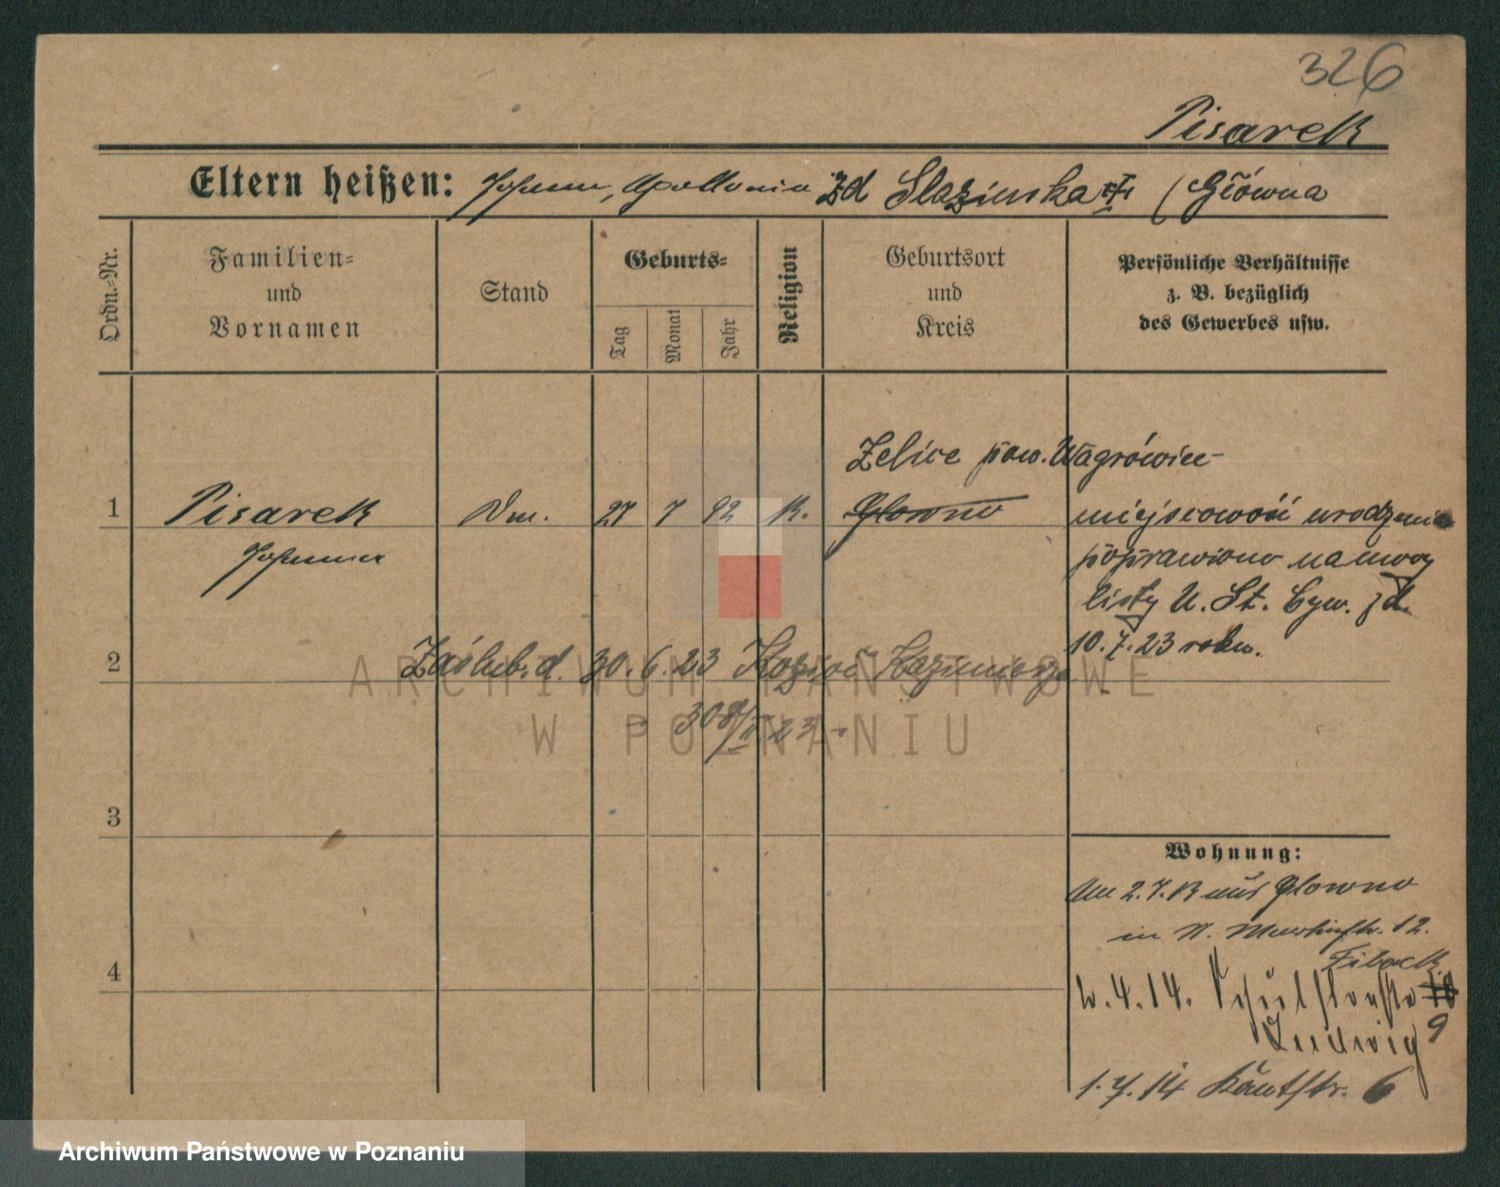 326
Pisarek
Eltern heißen: Johann, Apollonia zd Slazinska (Główna
Ordn.-Nr.
Familien-
und
Vornamen
Stand
Geburts-
Tag
Monat
Jahr
Religion
Geburtsort
und
Kreis
Persönliche Verhältnisse
z. B. bezüglich
des Gewerbes usw.
Zelice pow. Wągrówiec
1 Pisarek 27 7 92 K. Glowno
Johanna
miejscowość urodzenia
poprawiono na mocy
listy U. St. Cyw. z d.
10.7.23 roku.
2 Zaślub. d. 30.6.23 Kazimierz
308/ 23
3
4
Wohnung:
Am 2.7.13 aus Glowno
in 12.
w. 4.14. 10
Ludwig 9
1.7.14 Kantstr. 6
ARCHIWUM PAŃSTWOWE
W POZNANIU
Archiwum Państwowe w Poznaniu